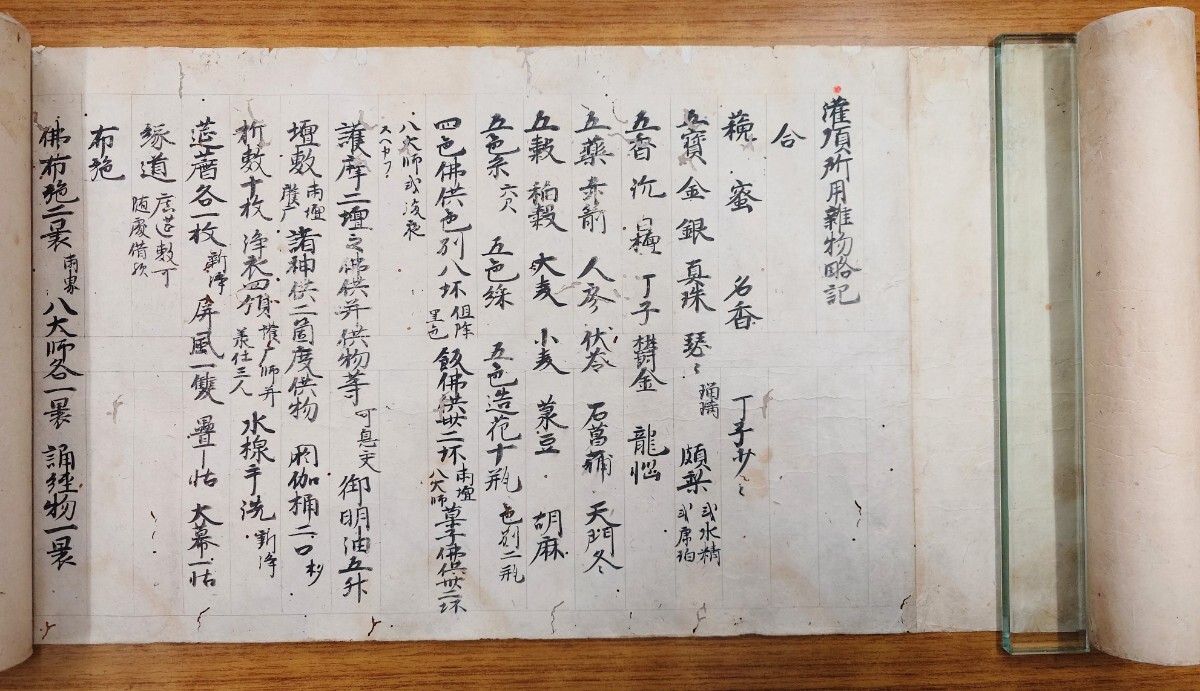 灌頂所用雜物略記
合
蘓 蜜 名香 丁子少々
五寶 金 銀 真珠 瑟々 瑪瑙 頗梨 或水精 或虎珀
五香 沈 白檀 丁子 欝金 龍悩
五藥 赤箭 人参 伏苓 石菖蒲 天門冬
五穀 稲穀 大麦 小麦 菉豆 胡麻
五色糸 六尺 五色綵 五色造花十瓶 色別二瓶
四色佛供色別八坏 但除黒色 飯佛供廿二坏 両壇八大師 菓子佛供廿二坏
八大師或後夜
スヘカラ
護摩二壇之佛供并供物等 可息災 御明油五升
壇敷 両壇 諸神供二箇度供物 閼伽桶二口 杓
折敷十枚 浄衣四領 承仕三人 水線手洗 新浄
莚薦各一枚 新浄 屏風一雙 疊一帖 大幕一帖
縁道 莚敷可 随處借欤
布施
佛布施二褁 両界 八大師各一褁 誦経物一褁